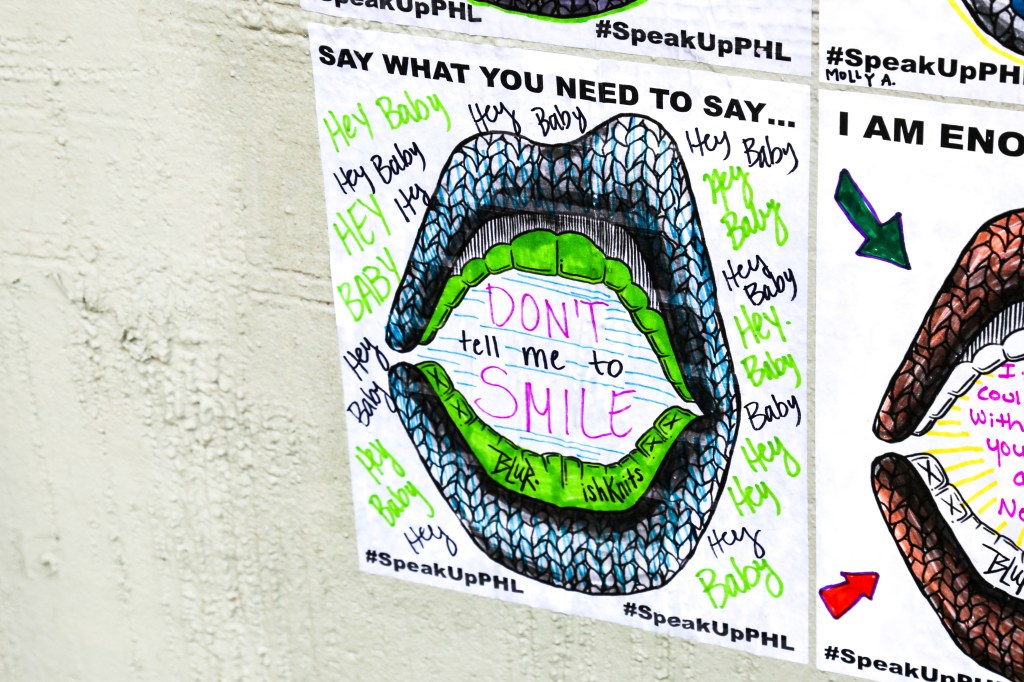 #SpeakUpPHL
#SpeakUpPHL
SAY WHAT YOU NEED TO SAY...
Hey Baby
Hey Baby
Hey Baby
Hey
HEY
BABY
Hey
Baby
Hey
Baby
Hey
Hey Baby
Hey
Baby
Hey
Baby
Hey.
Baby
Baby
Hey
Hey
Hey
Baby
DON'T
tell me to
SMILE
BLUR.
ishKnits
#SpeakUpPHL
#SpeakUpPHL
#SpeakUpPHL
MOLLY A.
I AM
I
with
you
#SpeakUpPHL